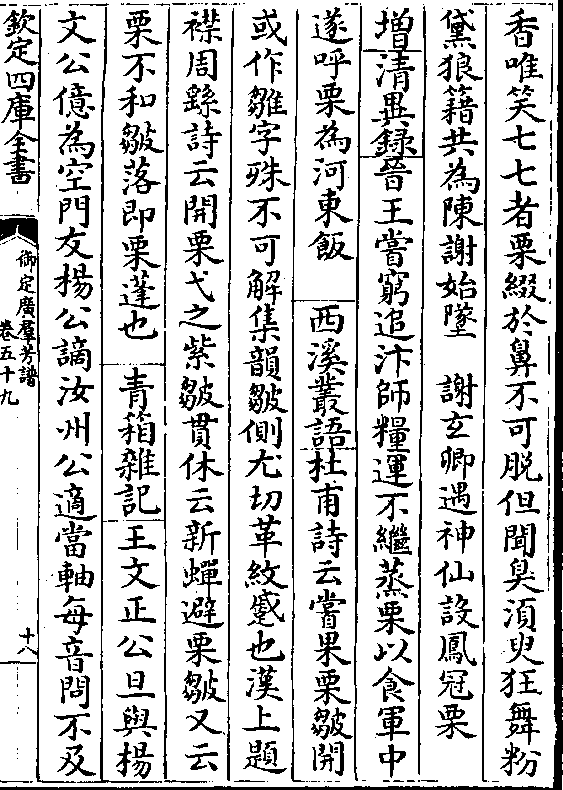 香唯笑七七者栗綴於鼻不可脱但聞臭湏臾狂舞粉
黛狼藉共為陳謝始墜　謝玄卿遇神仙設鳳冠栗
增清異録晉王嘗窮追汴師糧運不繼蒸栗以食軍中
遂呼栗為河東飯　西溪叢語杜甫詩云嘗果栗皺開
或作雛字殊不可解集韻皺側尤切革紋蹙也漢上題
襟周繇詩云開栗弋之紫皺貫休云新蟬避栗皺又云
栗不和皺落即栗蓬也　青箱雜記王文正公旦與楊
文公億為空門友楊公謫汝州公適當軸每音問不及
欽定四庫全書
御定廣羣芳譜
卷五十九
十八